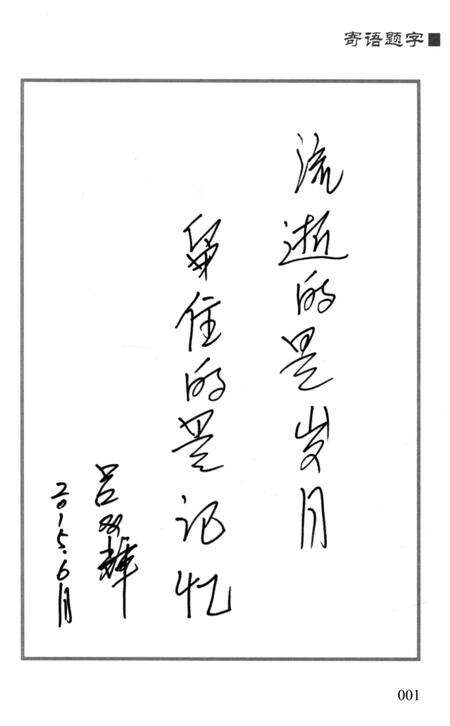 寄语题字
流逝的是岁月
留住的是记忆
吕双辉
2015.6月
001